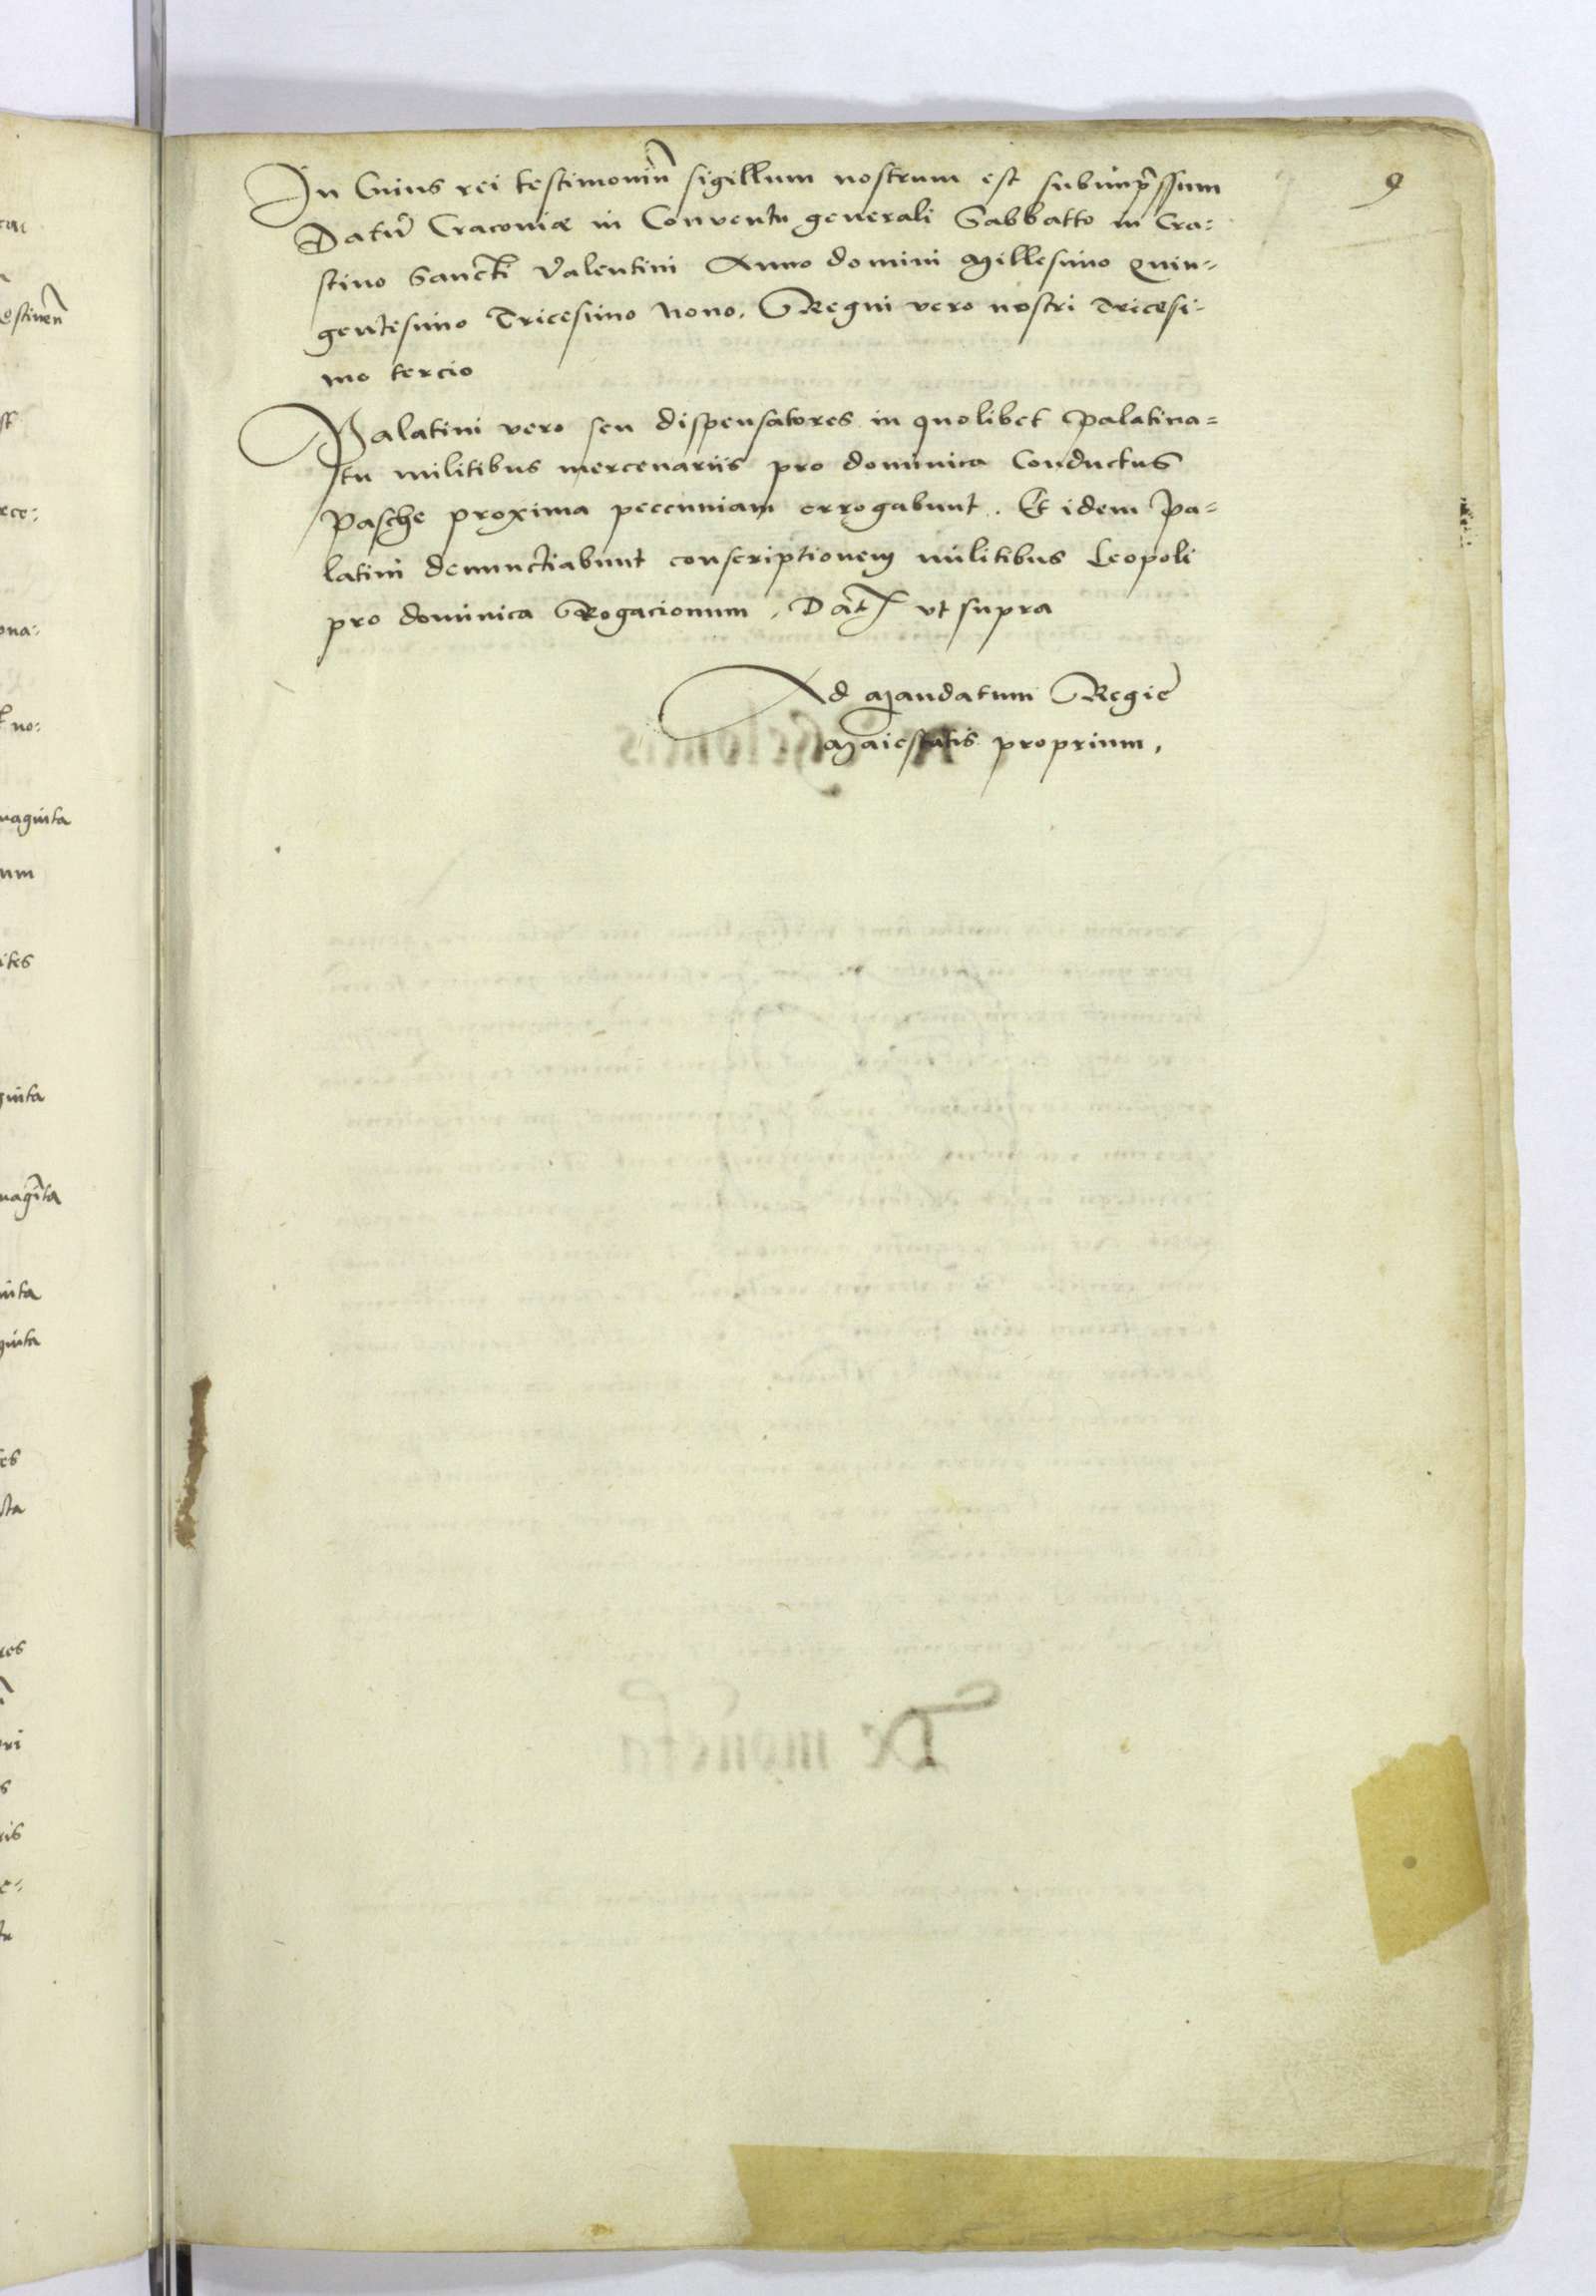 9
In Cuius rei testimoniū sigillum nostrum est subimp̄ssum
Datum̄ Cracoviæ in Conventu generali Sabbatto in Cra=
stino Sancti Valentini Anno domini Millesimo Quin=
gentesimo Tricesimo Nono. Regni vero nostri Tricesi=
mo tercio
Palatini vero seu dispensatores in quolibet Palatina=
tu militibus mercenariis pro dominica Conductus
Pasche proxima peccuniam errogabunt. Et idem Pa=
latini denunctiabunt conscriptionem militibus Leopoli
pro dominica Rogacionum, Dat vt supra
Ad Mandatum Regie
Maiestatis proprium,